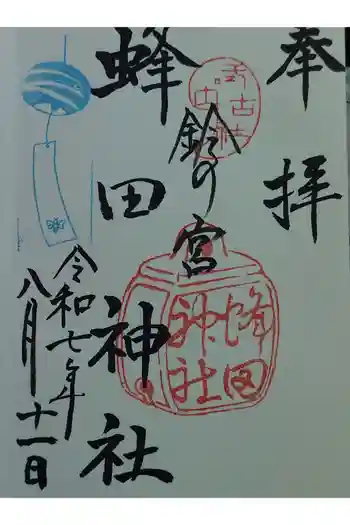 奉拝
鈴の宮
蜂田神社
令和七年
八月十一日
蜂田
神社